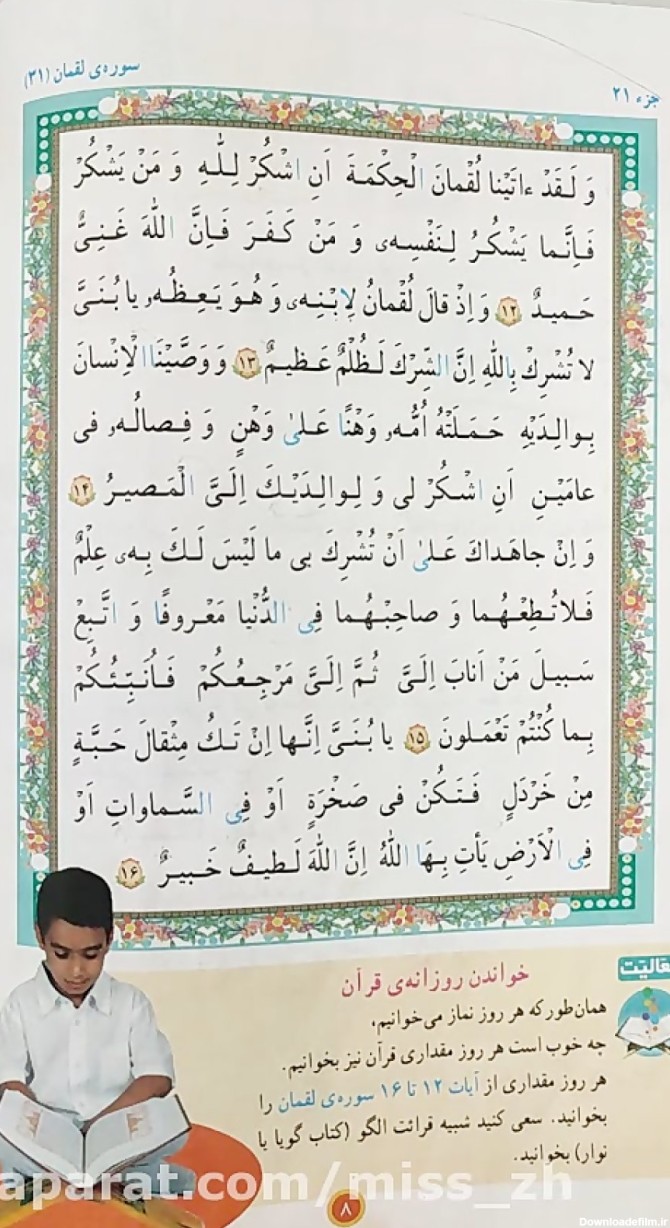 جزء ۲۱
سوره‌ی لقمان (۳۱)
وَ لَقَدْ ءاتَيْنا لُقْمانَ الْحِكْمَةَ اَنِ اشْكُرْ لِلّٰهِ وَ مَنْ يَشْكُرْ
فَاِنَّما يَشْكُرُ لِنَفْسِهٖ وَ مَنْ كَفَرَ فَاِنَّ اللّٰهَ غَنِىٌّ
حَميدٌ ۱۲ وَ اِذْ قالَ لُقْمانُ لِابْنِهٖ وَ هُوَ يَعِظُهُ يا بُنَىَّ
لا تُشْرِكْ بِاللّٰهِ اِنَّ الشِّرْكَ لَظُلْمٌ عَظيمٌ ۱۳ وَ وَصَّيْنَا الْاِنْسانَ
بِوالِدَيْهِ حَمَلَتْهُ اُمُّهُ وَهْنًا عَلىٰ وَهْنٍ وَ فِصالُهُ فى
عامَيْنِ اَنِ اشْكُرْ لى وَ لِوالِدَيْكَ اِلَىَّ الْمَصيرُ ۱۴
وَ اِنْ جاهَداكَ عَلىٰ اَنْ تُشْرِكَ بى ما لَيْسَ لَكَ بِهٖ عِلْمٌ
فَلا تُطِعْهُما وَ صاحِبْهُما فِى الدُّنْيا مَعْروفًا وَ اتَّبِعْ
سَبيلَ مَنْ اَنابَ اِلَىَّ ثُمَّ اِلَىَّ مَرْجِعُكُمْ فَاُنَبِّئُكُمْ
بِما كُنْتُمْ تَعْمَلونَ ۱۵ يا بُنَىَّ اِنَّها اِنْ تَكُ مِثْقالَ حَبَّةٍ
مِنْ خَرْدَلٍ فَتَكُنْ فى صَخْرَةٍ اَوْ فِى السَّماواتِ اَوْ
فِى الْاَرْضِ يَأْتِ بِهَا اللّٰهُ اِنَّ اللّٰهَ لَطيفٌ خَبيرٌ ۱۶
خواندن روزانه‌ی قرآن
همان‌طور که هر روز نماز می‌خوانیم،
چه خوب است هر روز مقداری قرآن نیز بخوانیم.
هر روز مقداری از آیات ۱۲ تا ۱۶ سوره‌ی لقمان را
بخوانید. سعی کنید شبیه قرائت الگو (کتاب گویا یا
نوار) بخوانید.
aparat.com/miss_zh
۸
Downloadefilm.ir